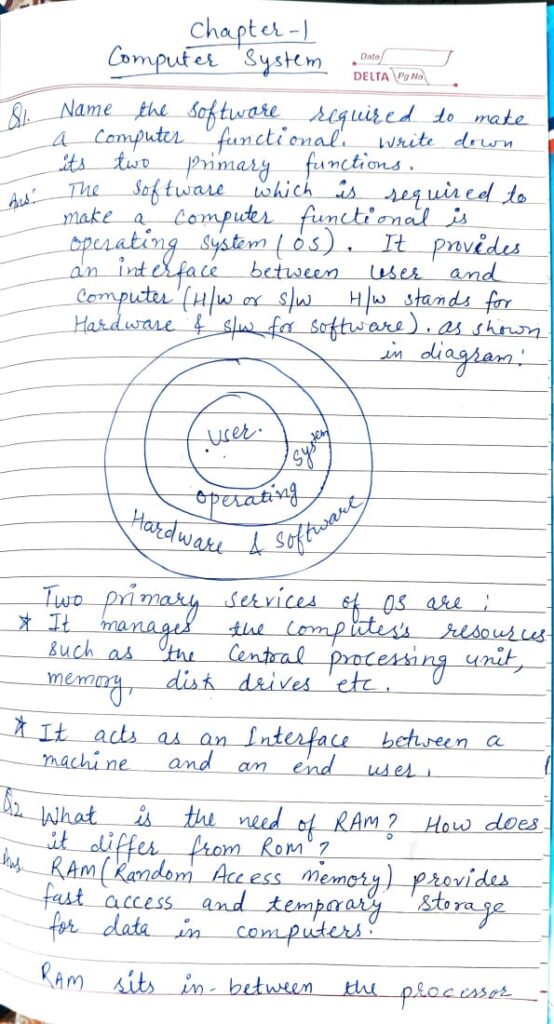 Chapter-1
Computer System
Date
DELTA Pg No
Q1. Name the software required to make
a computer functional. write down
its two primary functions.
Ans: The software which is required to
make a computer functional is
operating system (OS). It provides
an interface between user and
computer (H/w or S/w H/w stands for
Hardware & S/w for software). as shown
in diagram:
user.
System
operating
Hardware & software
Two primary services of OS are :
* It manages the computer's resources
such as the Central processing unit,
memory, disk drives etc.
* It acts as an Interface between a
machine and an end user.
Q2 What is the need of RAM? How does
it differ from Rom?
Ans. RAM (Random Access memory) provides
fast access and temporary storage
for data in computers.
RAM sits in-between the processor